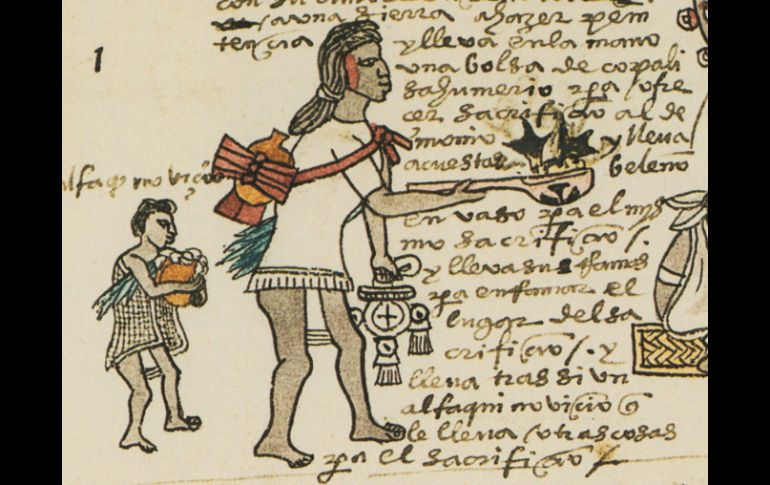 una sierra a hazer peni
tencia y lleva en la mano
una bolsa de copali
sahumerio pᵃ ofre
cer sacrificio al de
monio y lleva
acuestas beleño
en vaso pᵃ el mis
mo sacrificio /.
y lleva sus
pᵃ el
lugar del sa
crificio /. y
lleva tras si un
alfaqui novicio q̄
le lleva otras cosas
pᵃ el sacrificio /
1
alfaqui novicio